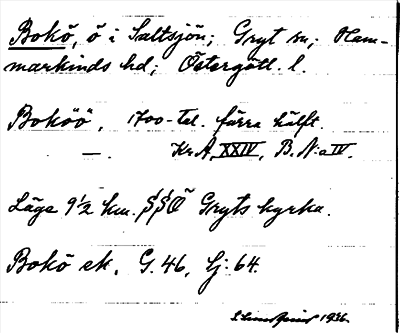 Bokö, ö i Saltsjön; Gryt sn; Ham-
markinds hd; Östergötl. l.
Boköö, 1700-tal. förra hälft.
— . Kr.A. XXIV, B. N:o IV.
Läge 9 1/2 km. SSÖ Gryts kyrka.
Bokö ek. G. 46, Sj: 64.
1936.